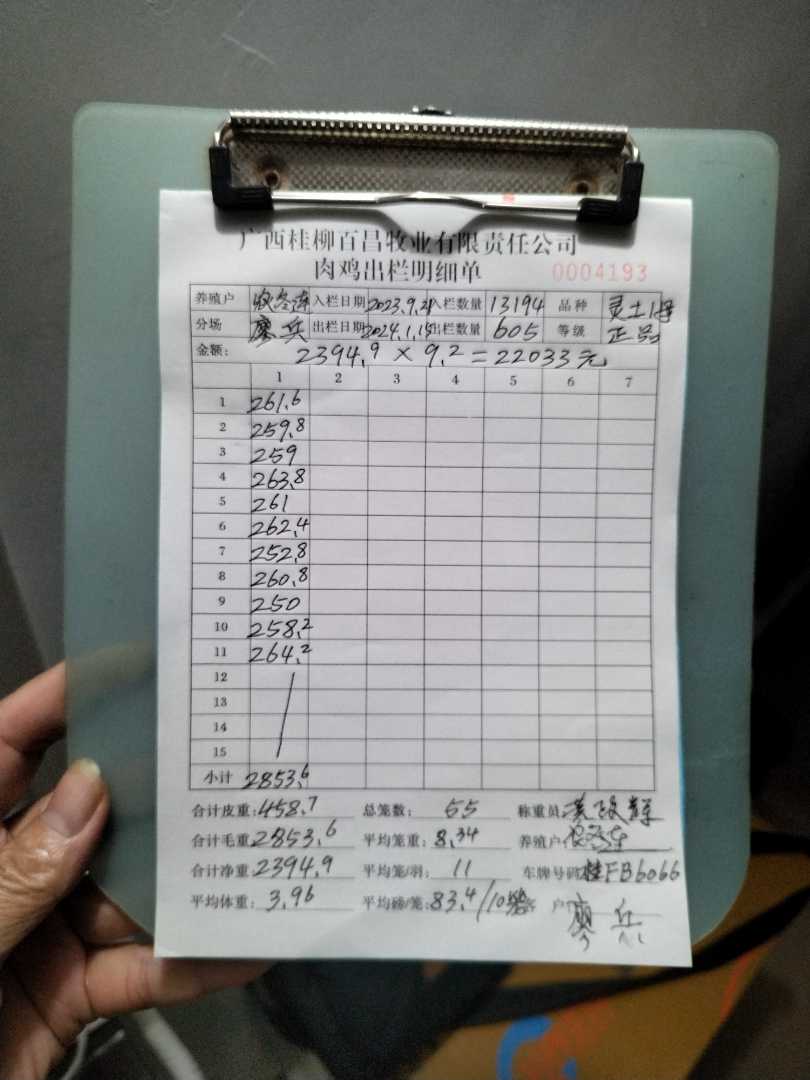 广西桂柳百昌牧业有限责任公司
肉鸡出栏明细单 0004193
养殖户 入栏日期 2023.9.21 入栏数量 13194 品种 灵土1号
分场 廖兵 出栏日期 2024.1.15 出栏数量 605 等级 正品
金额: 2394.9 × 9.2 = 22033元
1 2 3 4 5 6 7
1 261.6
2 259.8
3 259
4 263.8
5 261
6 262.4
7 252.8
8 260.8
9 250
10 258.2
11 264.2
12
13
14
15
小计 2853.6
合计皮重: 458.7 总笼数: 55 称重员:
合计毛重: 2853.6 平均笼重: 8.34 养殖户:
合计净重: 2394.9 平均笼/羽: 11 车牌号码: 桂FB6066
平均体重: 3.96 平均磅/笼: 83.4/10 客户: 廖兵